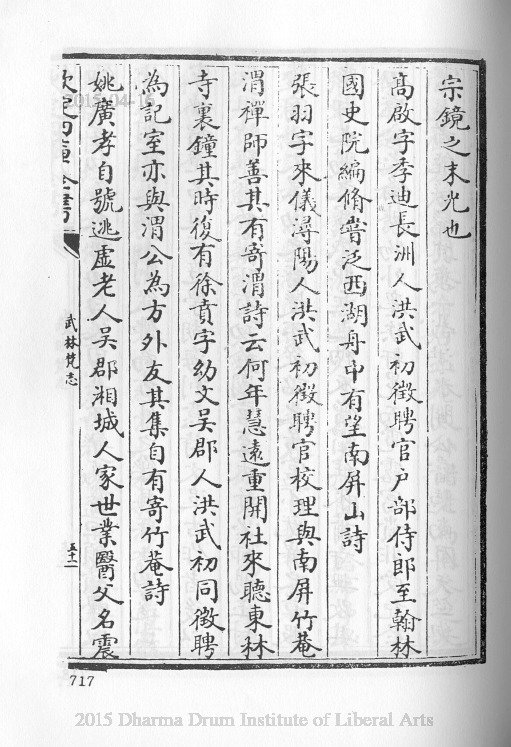 宗鏡之末光也
高啟字季迪長洲人洪武初徴聘官户部侍郎至翰林
國史院編脩嘗泛西湖舟中有望南屏山詩
張羽字來儀潯陽人洪武初徴聘官校理與南屏竹菴
渭禪師善其有寄渭詩云何年慧遠重開社來聽東林
寺裏鐘其時復有徐賁字幼文吳郡人洪武初同徴聘
為記室亦與渭公為方外友其集自有寄竹菴詩
姚廣孝自號逃虚老人吳郡湘城人家世業醫父名震
欽定四庫全書
武林梵志
五十二
717
2015 Dharma Drum Institute of Liberal Arts